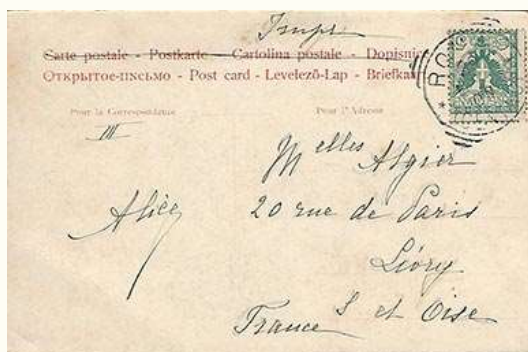 Impr
Carte postale - Postkarte - Cartolina postale - Dopisnice
Открытое-письмо - Post card - Levelező-Lap - Briefkaa
Pour la Correspondance
Pour l'Adresse
III
Melles Algier
Alice
20 rue de Paris
Livry
S et Oise
France
RO